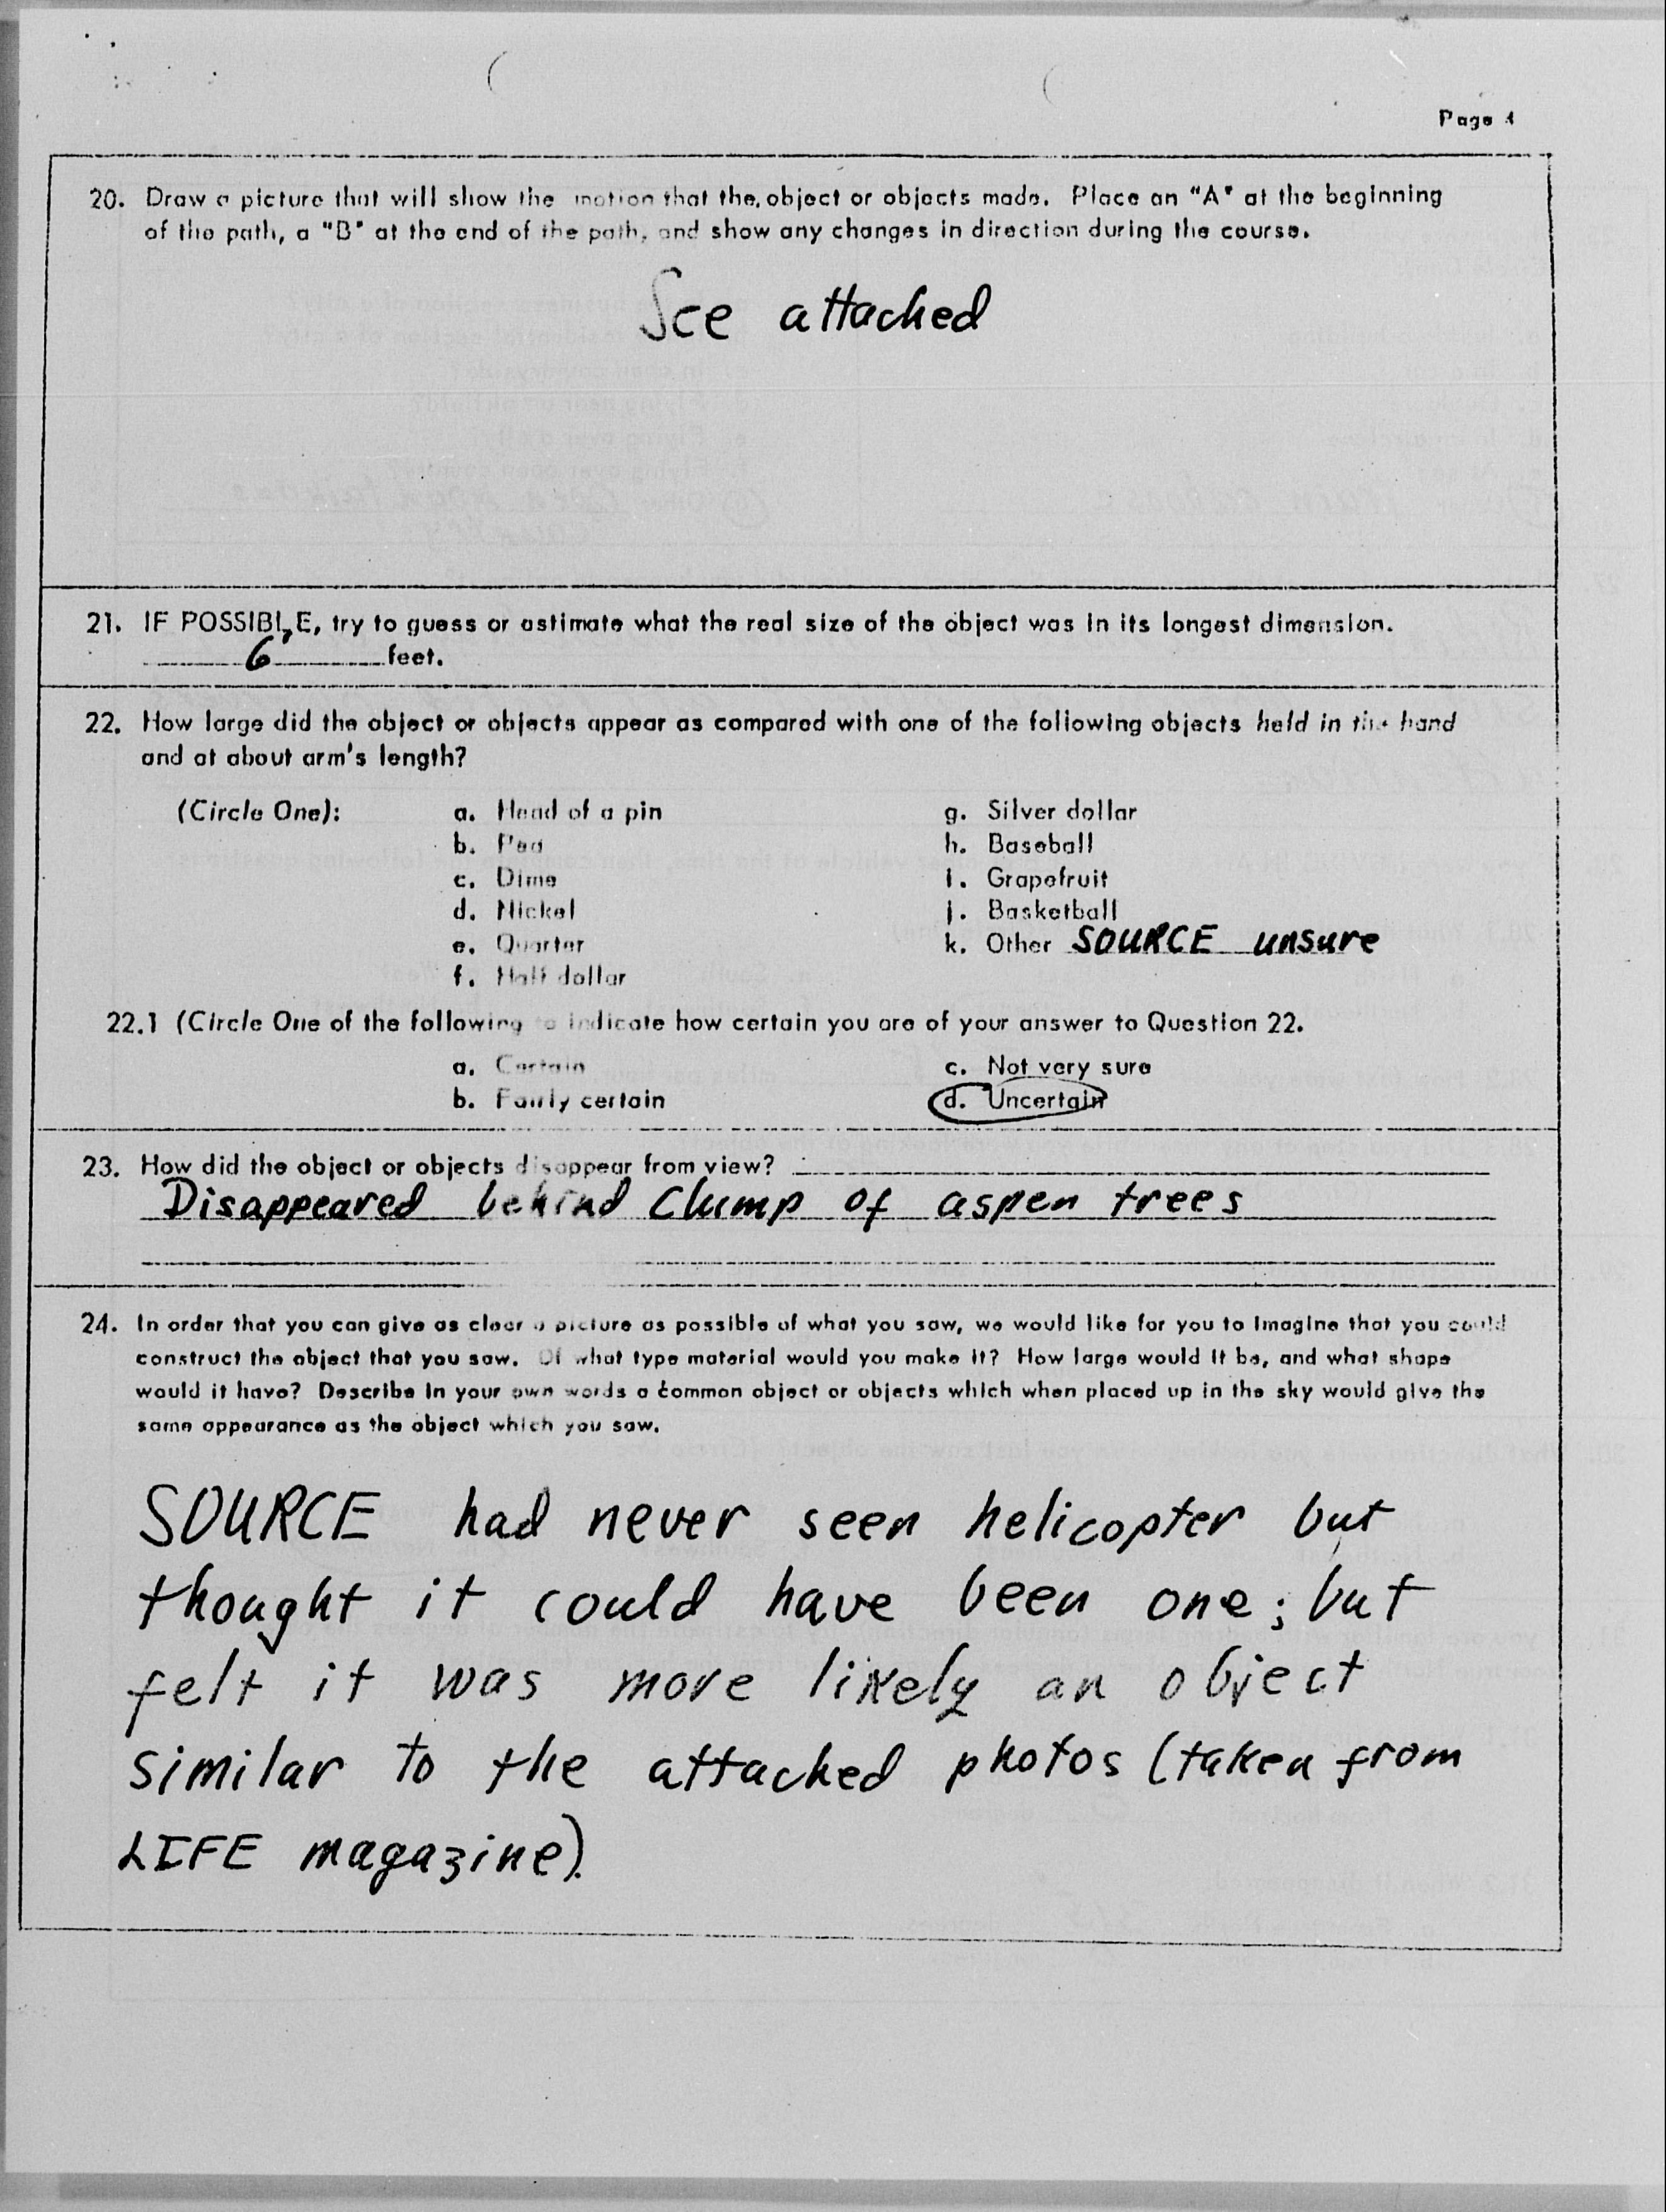 Page 4
20. Draw a picture that will show the motion that the object or objects made. Place an "A" at the beginning
of the path, a "B" at the end of the path, and show any changes in direction during the course.
See attached
21. IF POSSIBLE, try to guess or estimate what the real size of the object was in its longest dimension.
6 feet.
22. How large did the object or objects appear as compared with one of the following objects held in the hand
and at about arm's length?
(Circle One): a. Head of a pin g. Silver dollar
b. Pea h. Baseball
c. Dime i. Grapefruit
d. Nickel j. Basketball
e. Quarter k. Other SOURCE unsure
f. Half dollar
22.1 (Circle One of the following to indicate how certain you are of your answer to Question 22.
a. Certain c. Not very sure
b. Fairly certain d. Uncertain
23. How did the object or objects disappear from view?
Disappeared behind clump of aspen trees
24. In order that you can give as clear a picture as possible of what you saw, we would like for you to imagine that you could
construct the object that you saw. Of what type material would you make it? How large would it be, and what shape
would it have? Describe in your own words a common object or objects which when placed up in the sky would give the
same appearance as the object which you saw.
SOURCE had never seen helicopter but
thought it could have been one; but
felt it was more likely an object
similar to the attached photos (taken from
LIFE magazine).